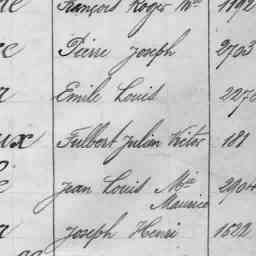 François Roger Mie 1192
Pierre Joseph 2703
Emile Louis 2276
ux Fulbert Julian Victor 181
Jean Louis Mie 2904
Maurice
Joseph Henri 1522